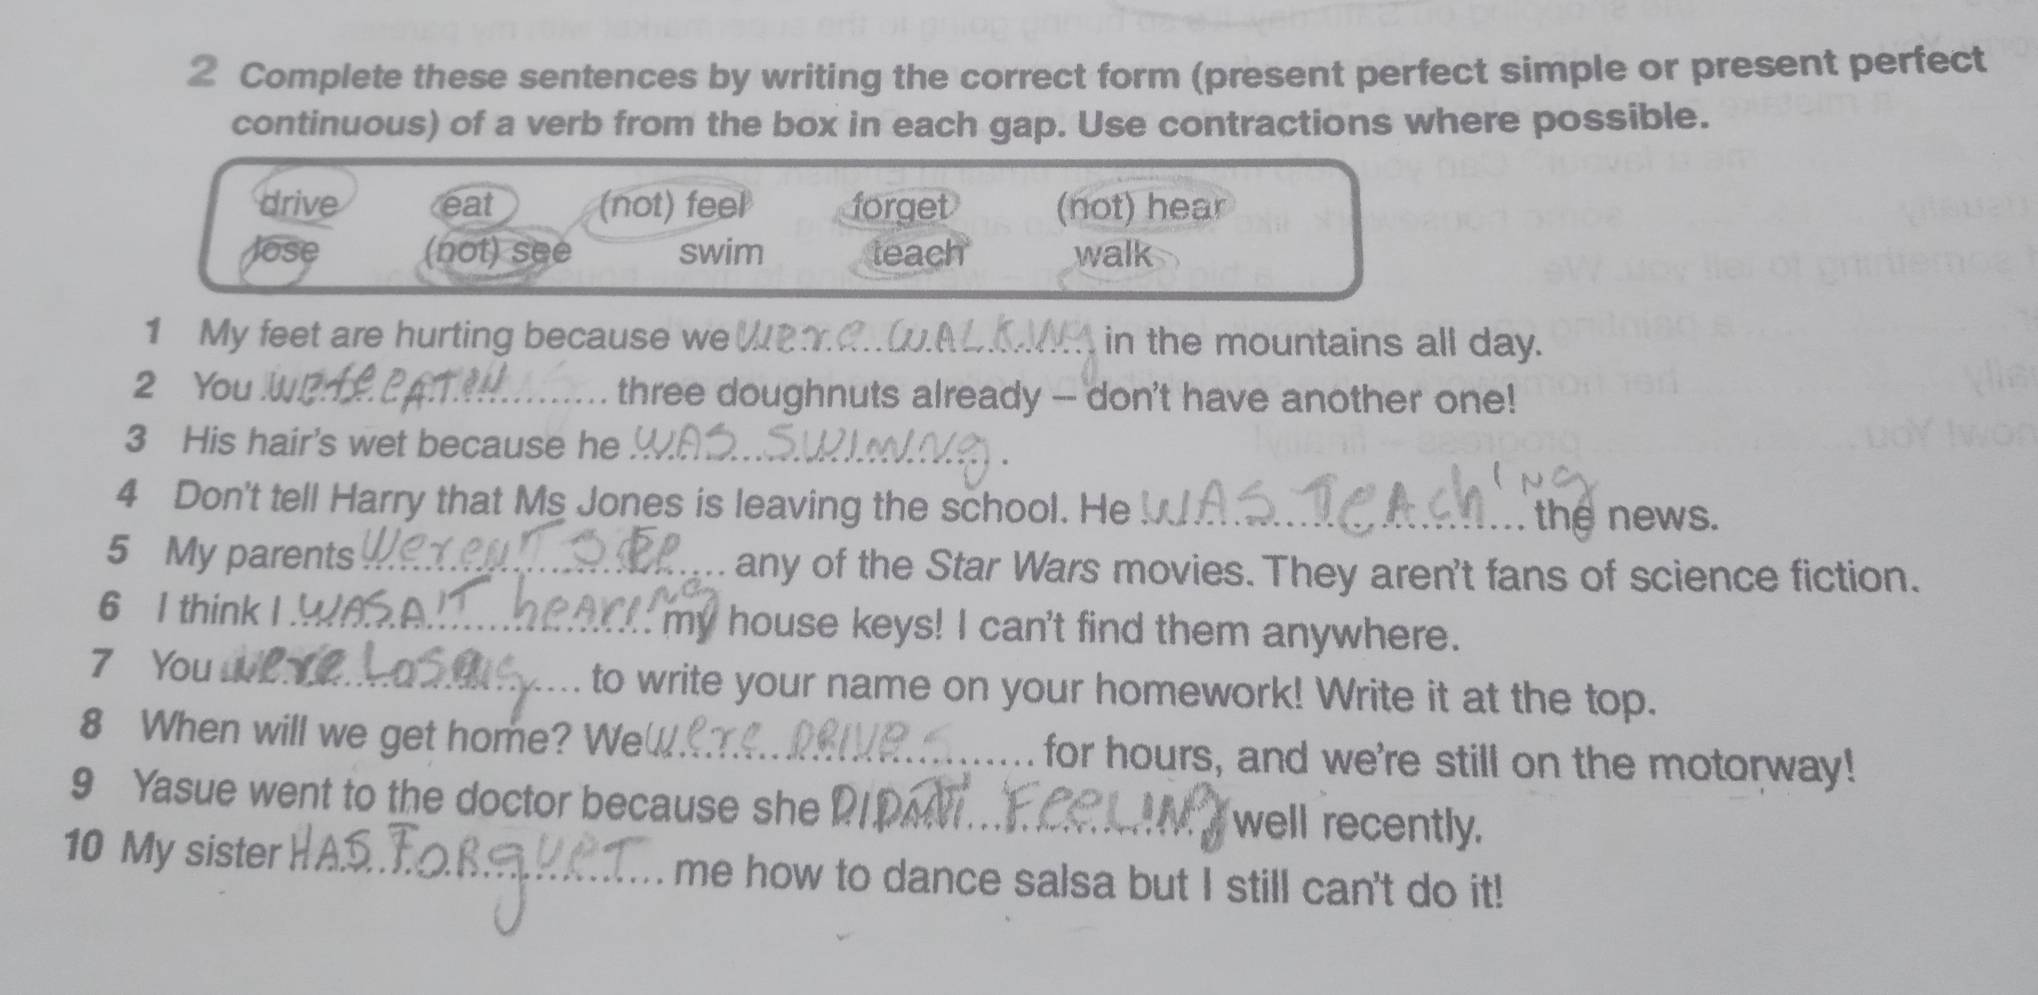 2 Complete these sentences by writing the correct form (present perfect simple or present perfect
continuous) of a verb from the box in each gap. Use contractions where possible.
drive eat (not) feel forget (not) hear
lose (not) see swim teach walk
1 My feet are hurting because we were WALKINg in the mountains all day.
2 You were eATeN three doughnuts already – don't have another one!
3 His hair's wet because he WAS SWIMINg.
4 Don't tell Harry that Ms Jones is leaving the school. He WAS TeACh'INg the news.
5 My parents Weren'T See any of the Star Wars movies. They aren't fans of science fiction.
6 I think I WASN'T heAriNg my house keys! I can't find them anywhere.
7 You were LoSing to write your name on your homework! Write it at the top.
8 When will we get home? We were DRIVeS for hours, and we're still on the motorway!
9 Yasue went to the doctor because she DIDNT FeeLINg well recently.
10 My sister HAS FORgUeT me how to dance salsa but I still can't do it!